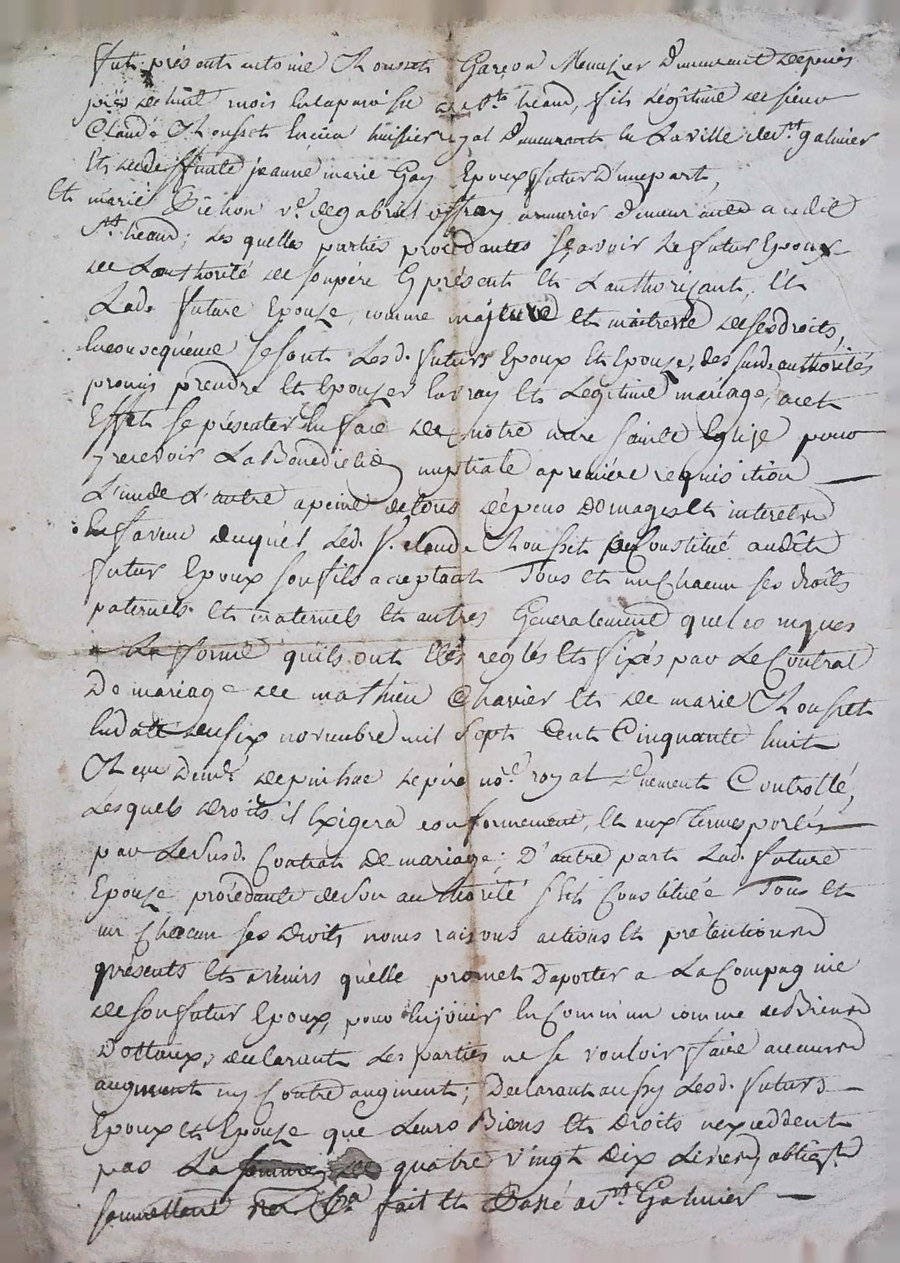 fut présent antoine Rousset Garçon Menusier Demeurant depuis
près de huit mois en la paroisse de St heand, fils Légitime de sieur
Claude Rousset ancien huissier royal Demeurant en La ville de St galmier
Et de deffunte jeanne marie Gay Epoux futur D'une part,
Et marie Pichon ve. de gabriel offray armurier demeurante audit
St heand; Les quelles parties procédantes sçavoir Le futur Epoux
de Lauthorité de son père Cy présent Et Lauthorisant, Et
Lad. future Epouse, comme majeure et maitresse de ses droits,
En conséquence se sont Lesd. futurs Epoux Et Epouse, des susd. authorités
promis prendre Et Epouser En vray Et Légitime mariage, acet
Effet se présenter En face de notre mere sainte Eglise pour
y recevoir La Benediction nuptiale apremiére requisition
L'un de L'autre apeine de tous dépens Domages Et interets
En faveur duquel Led. Sr. claude Rousset a Constitué audit
futur Epoux son fils acceptant Tous Et un Chacun ses droits
paternels Et maternels Et autres Generalement quelconques
La forme quils ont Etés reglés Et fixés par Le Contrat
De mariage de mathieu Chavier Et de marie Rousset
En datte du six novembre mil sept Cent Cinquante huit
Reçu Denis depinhac Le pire no.e royal Duement Controllé,
Lesquels droits il Exigera conformement, Et aux Termes portés
par Le susd. Contrat De mariage; D'autre part Lad. future
Epouse procédante de son authorité s'est Constituée Tous Et
un Chacun ses Droits noms raisons actions Et prétentions
présents Et avenirs qu'elle promet Daporter a La Compagnie
de son futur Epoux, pour En jouir En Commun comme de Biens
Dottaux, declarant Les parties ne se vouloir faire aucuns
augment ny Contre augment; Declarant aussy Lesd. futurs
Epoux Et Epouse que Leurs Biens Et Droits nexceddent
pas La somme de quatre vingt Dix Livres,
soumettent fait Et Passé a St Galmier